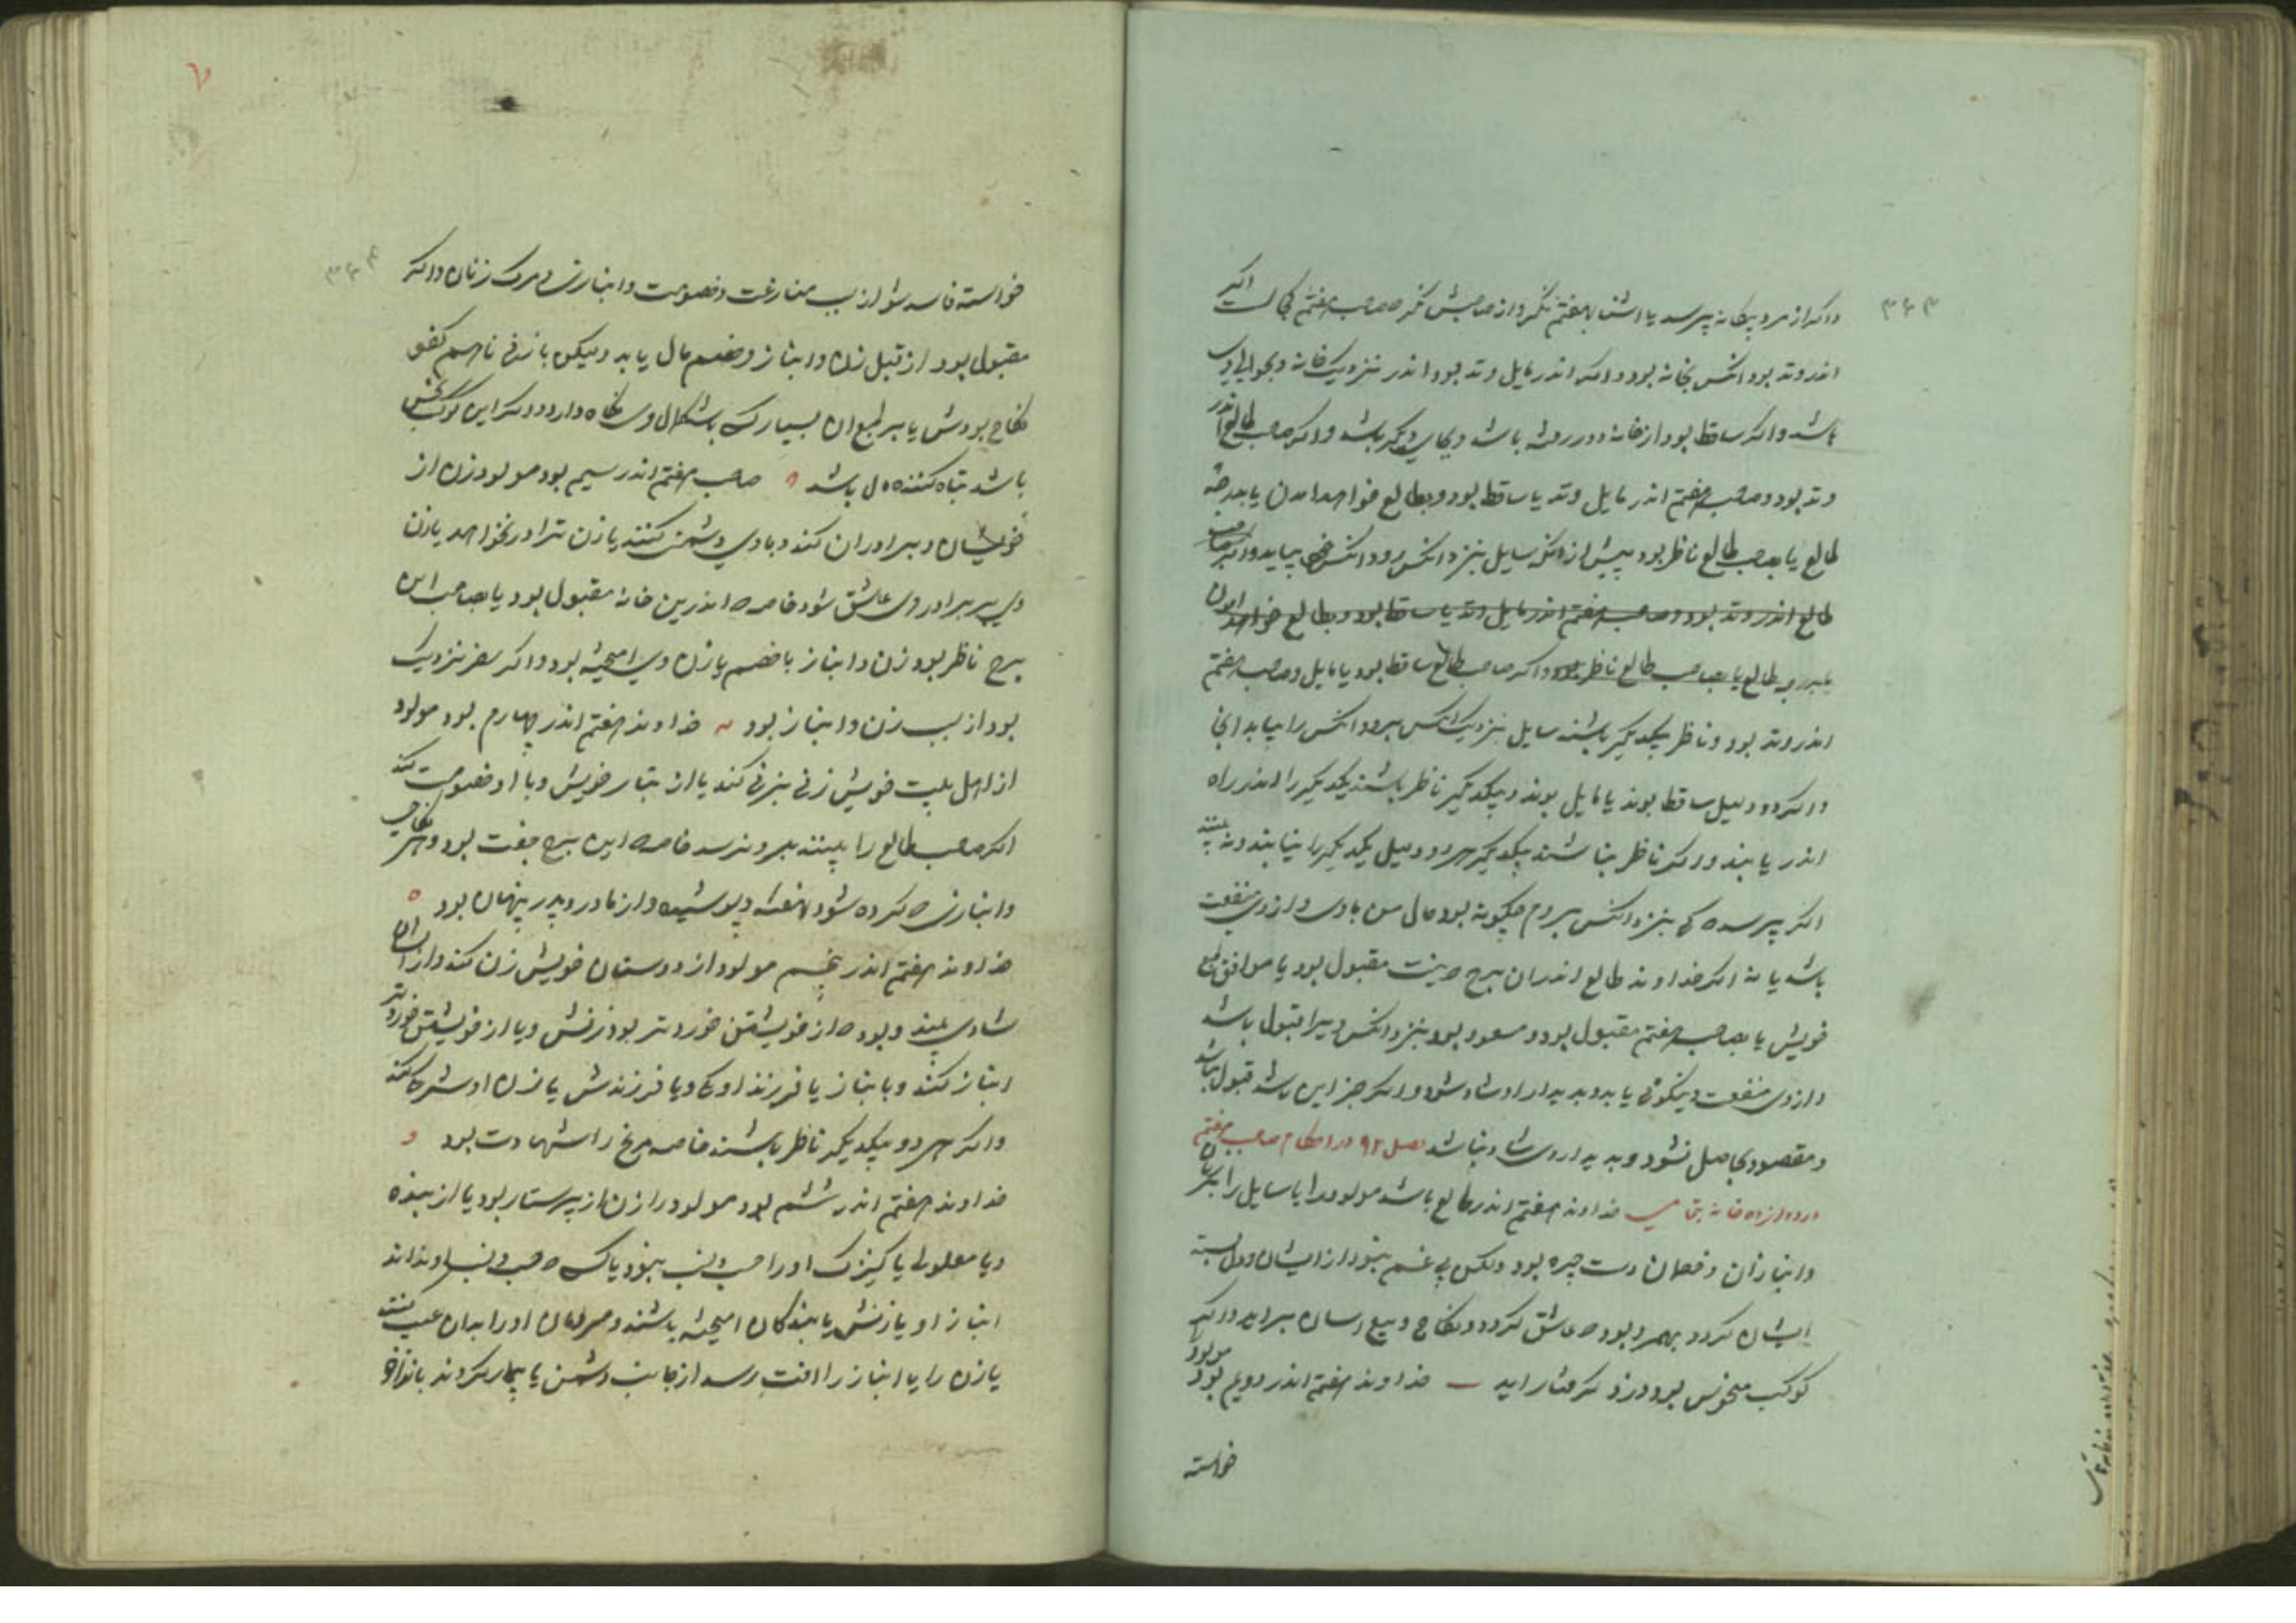 ۳۶۳
واکر از مرد بیکانه پرسد یا اشنا بهفتم نکر و از صاحبش نکر صاحب هفتم کجاست اکر
اندر وتد بود انکس بخانه بود واکر اندر مایل وتد بود اندر نزدیک خانه و بحوالی وی
باشد واکر ساقط بود از خانه دور رفته باشد و بجای دیکر باشد واکر صاحب طالع اندر
وتد بود و صاحب هفتم اندر مایل وتد یا ساقط بود و بطالع خواهد امدن یا بدرجه
طالع یا بصاحب طالع ناظر بود پیش از انکه سایل بنزد انکس رود انکس خود بیاید واکر صاحب
طالع اندر وتد بود و صاحب هفتم اندر مایل وتد یا ساقط بود و بطالع خواهد امدن
طالع یا بصاحب طالع ناظر بود واکر صاحب طالع ساقط بود یا مایل و صاحب هفتم
اندر وتد بود و ناظر بیکدیکر باشند سایل بنزدیک انکس برود انکس را بیابد انجا
واکر دو دلیل ساقط بوند یا مایل بوند و بیکدیکر ناظر باشند یکدیکر را اندر راه
اندر یابند واکر ناظر نباشند بیکدیکر هر دو دلیل یکدیکر را نیابند و نه بینند
اکر پرسد که بنزد انکس بروم چکونه بود حال من با وی و از وی منفعت
باشد یا نه اکر خداوند طالع اندران برج مقبول بود یا موافق طبع
خویش یا بصاحب هفتم مقبول بود و مسعود بود بنزد انکس ویرا قبول باشد
و از وی منفعت و نیکوئی یابد و بدیدار او شاد شود واکر جز این باشد قبول نباشد
و مقصود بحاصل نشود و بدیدار وی شاد نباشد فصل ۹۲ در احکام صاحب هفتم
در دوازده خانه بتمامی خداوند هفتم اندر طالع باشد مولود را یا سایل را بر زنان
و انبازان و خصمان دست چیره بود ولکن بی غم نبود از ایشان و دل بسته
ایشان کردد بمهر و بود که عاشق کردد و نکاح و بیع اسان براید واکر
کوکب منحوس بود دزد کرفتار اید خداوند هفتم اندر دویم بود مولود را
خواسته
۳۶۴
خواسته فاسد شود از سبب منازعت و خصومت و انبازی و مرک زنان واکر
مقبول بود از قبل زنان و انباز و خصم مال یابد ولیکن با زنی ناهم کفو
نکاح بودش یا بر طمع ان بسیار باشکال وی نکاه دارد واکر این کوکب نحس
باشد تباه کننده مال باشد صاحب هفتم اندر سیم بود مولود زن از
خویشان و برادران کند و با وی دشمنی کنند یا زن برادر بخواهد یا زن
وی بر برادر وی عاشق شود خاصه که اندرین خانه مقبول بود یا بصاحب این
برج ناظر بود زن و انباز با خصم یا زن وی امیخته بود واکر سفر نزدیک
بود از سبب زن و انباز بود خداوند هفتم اندر چهارم بود مولود
از اهل بیت خویش زنی بزنی کند یا از تبار خویش و با او خصومت کند
اکر صاحب طالع را بیند بدو نرسد خاصه که این برج جفت بود و هر نکاحی
و انبازی که کرده شود نهفته و پوشیده و از مادر و پدر پنهان بود
خداوند هفتم اندر پنجم مولود از دوستان خویش زن کند و از ایشان
شادی بیند و بود که از خویشتن خوردتر بود زنش و یا از خویشتن خوردتر
انباز کند و با انباز یا فرزند او کاود یا فرزندش یا زن او شرکا کند
واکر هر دو بیکدیکر ناظر باشند خاصه مریخ را شهادت بود
خداوند هفتم اندر ششم بود مولود را زن از پرستار بود یا از بنده
و یا معلولی یا کنیزک او را حسب و نسب نبود یا که حسب و نسب او ندانند
انباز او یا زنش با بندکان امیخته باشند و مردمان او را بدان عیب کنند
یا زن را یا انباز را افت رسد از جانب دشمن یا بیمار کردند